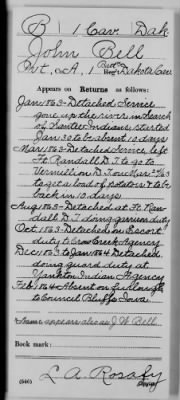 B | 1 Cav. | Dak
John Bell
Pvt. Co. A, 1 Batt'n Dakota Cav
Appears on Returns as follows:
Jan 1863-Detached Service
gone up the river in search
of Santee Indians, started
Jan 30 to be absent 10 days
Mar 1863-Detached Service, left
Ft. Randall D.T. to go to
Vermillion D.T. on Mar 1863
to get a load of potatoes & to be
back in 10 days
Aug 1863-Detached at Ft. Ran-
dall D.T. doing garrison duty
Oct 1863-Detached on Escort
duty to Crow Creek Agency
Dec 1863 to Jan 1864 Detached
doing guard duty at
Yankton Indian Agency
Feb, 1864 Absent on furlough
to Council Bluffs Iowa
Name appears also as J. W. Bell.
Book mark:
(546)
L. A. Rosafy
Copyist.